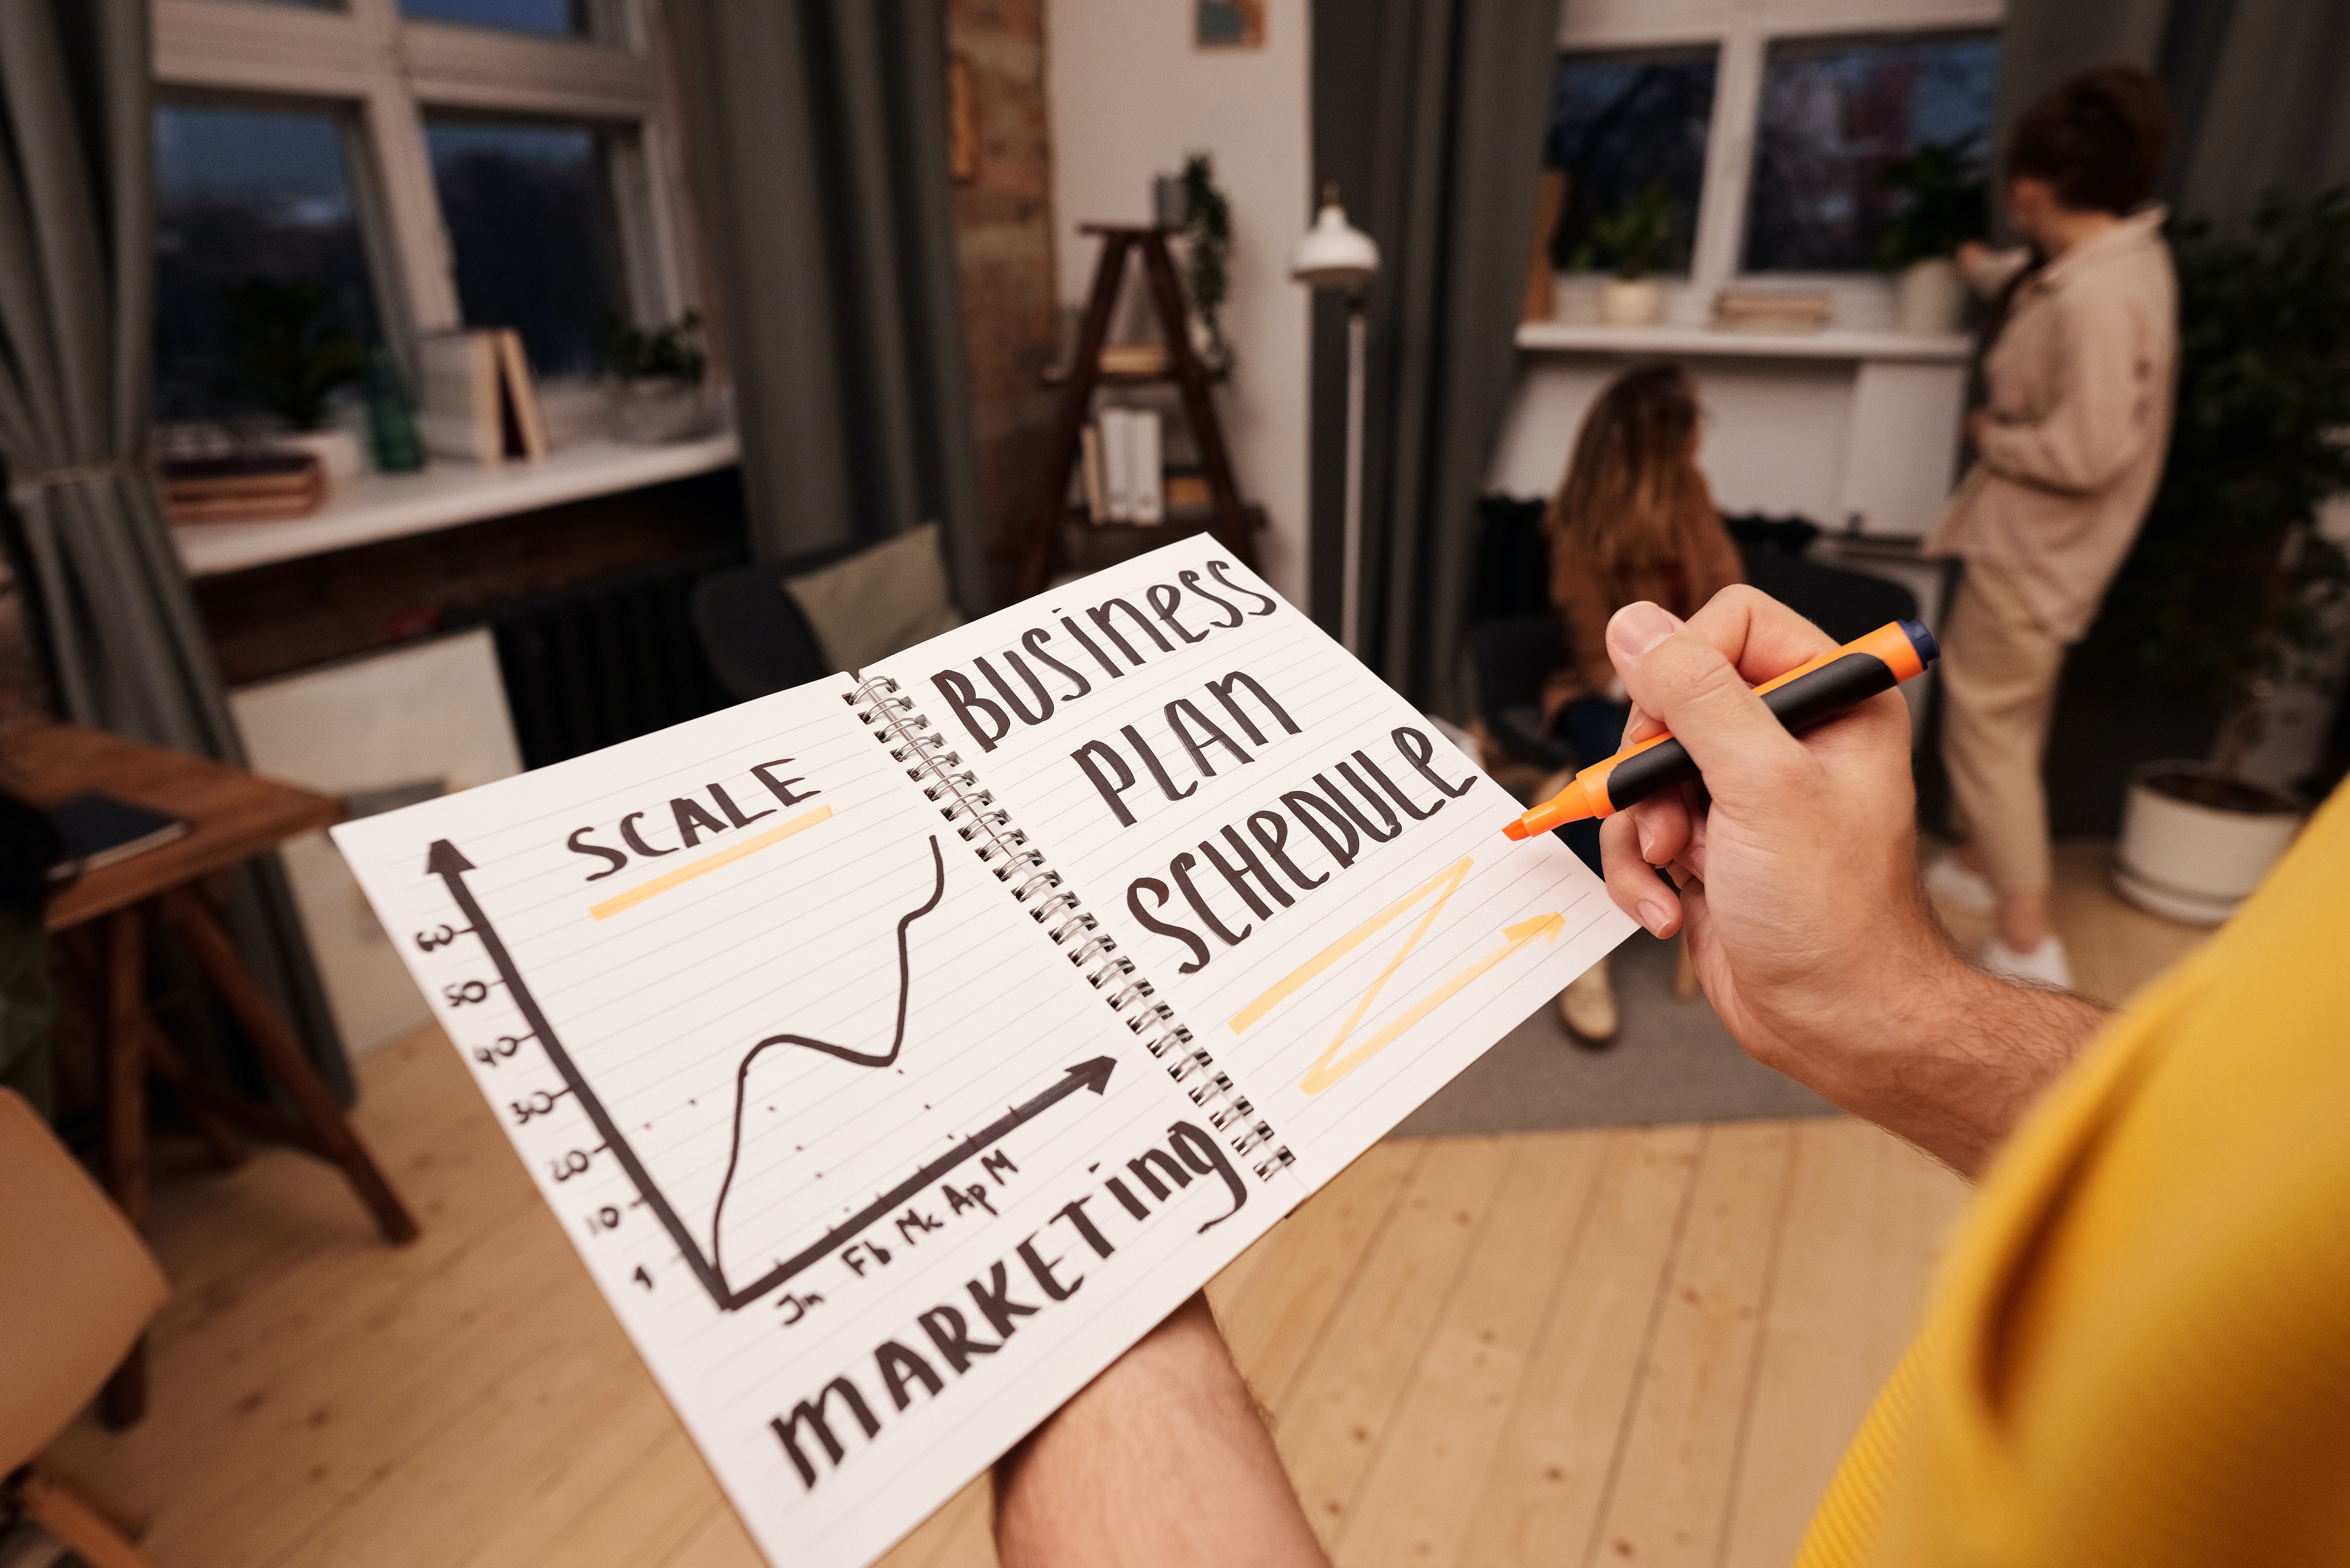 SCALE
60
50
40
30
20
10
1
Jn Fb Mc Ap M
MARKETing
BUSINESS
PLAN
SCHEDULE